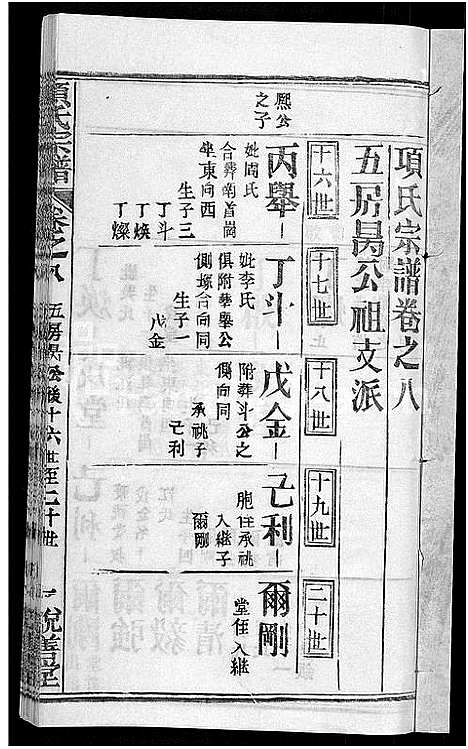 項氏宗譜卷之八
五房昺公祖支派
十六世
十七世
十八世
十九世
二十世
熙公
之子
丙舉
妣周氏
合葬南首崗
坐東向西
生子三
丁斗
丁煥
丁燦
丁斗
妣李氏
俱附葬舉公
側塜合向同
生子一
戊金
戊金
附葬斗公之
側向同
承祧子
己利
己利
胞侄承祧
入繼子
爾剛
爾剛
堂侄入繼
項氏宗譜
卷之八
五房昺公後十六世至二十世
一
悅善堂